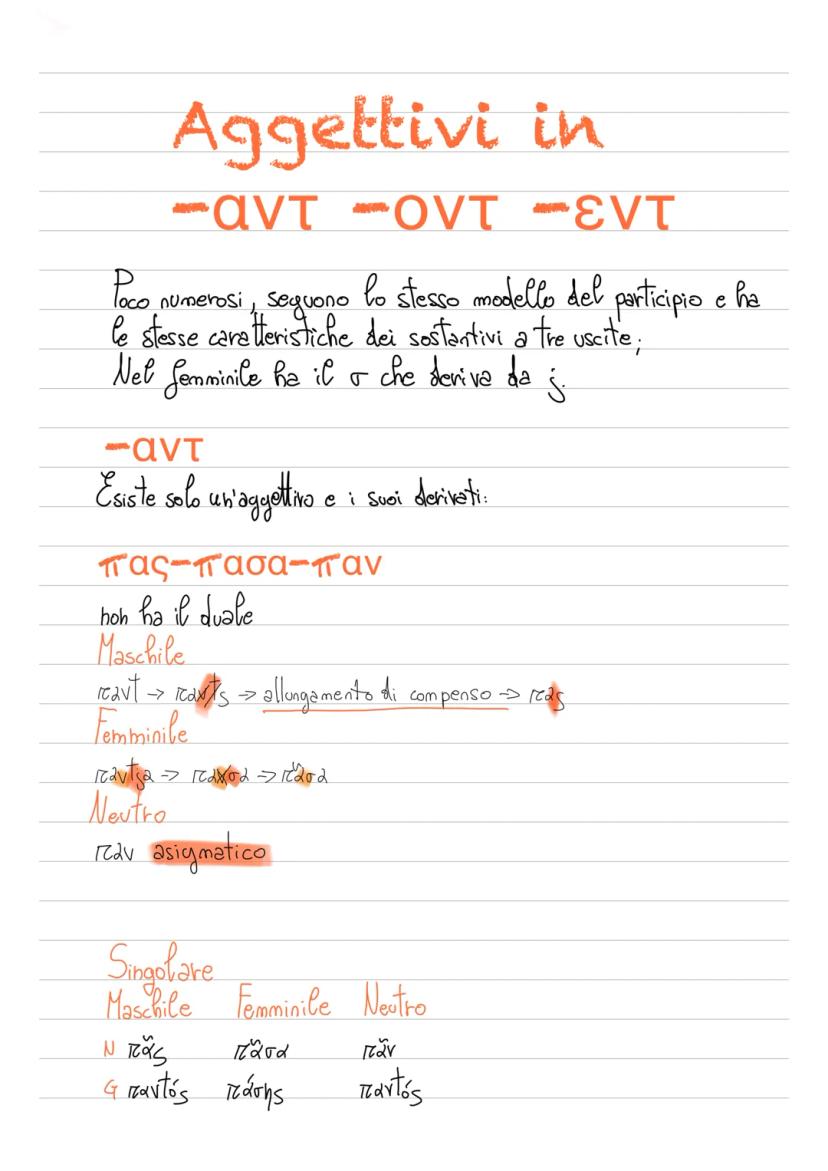 Aggettivi in
-αντ -οντ -εντ
Poco numerosi, seguono lo stesso modello del participio e ha
le stesse caratteristiche dei sostantivi a tre uscite;
Nel femminile ha il σ che deriva da j.
-αντ
Esiste solo un'aggettivo e i suoi derivati:
πας-πασα-παν
non ha il duale
Maschile
παντ → παντs → allungamento di compenso → πας
Femminile
παντjα → πανσα → πᾶσα
Neutro
παν asigmatico
Singolare
Maschile Femminile Neutro
N πᾶς πᾶσα πᾶν
G παντός πάσης παντός